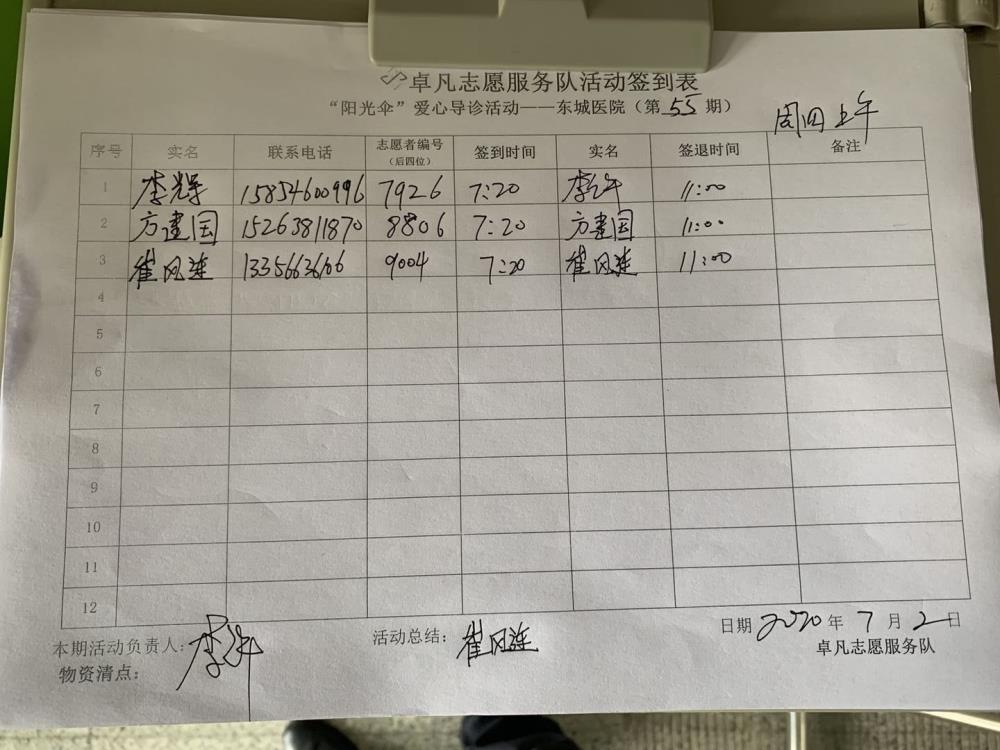 卓凡志愿服务队活动签到表
“阳光伞”爱心导诊活动——东城医院（第 55 期）
周四上午
序号 实名 联系电话 志愿者编号（后四位） 签到时间 实名 签退时间 备注
1 李辉 15854600996 7926 7:20 李辉 11:00
2 方建国 15263811870 8806 7:20 方建国 11:00
3 崔风莲 13356636166 9004 7:20 崔风莲 11:00
4
5
6
7
8
9
10
11
12
本期活动负责人：李辉 活动总结：崔风莲 日期 2020 年 7 月 2 日
物资清点： 卓凡志愿服务队